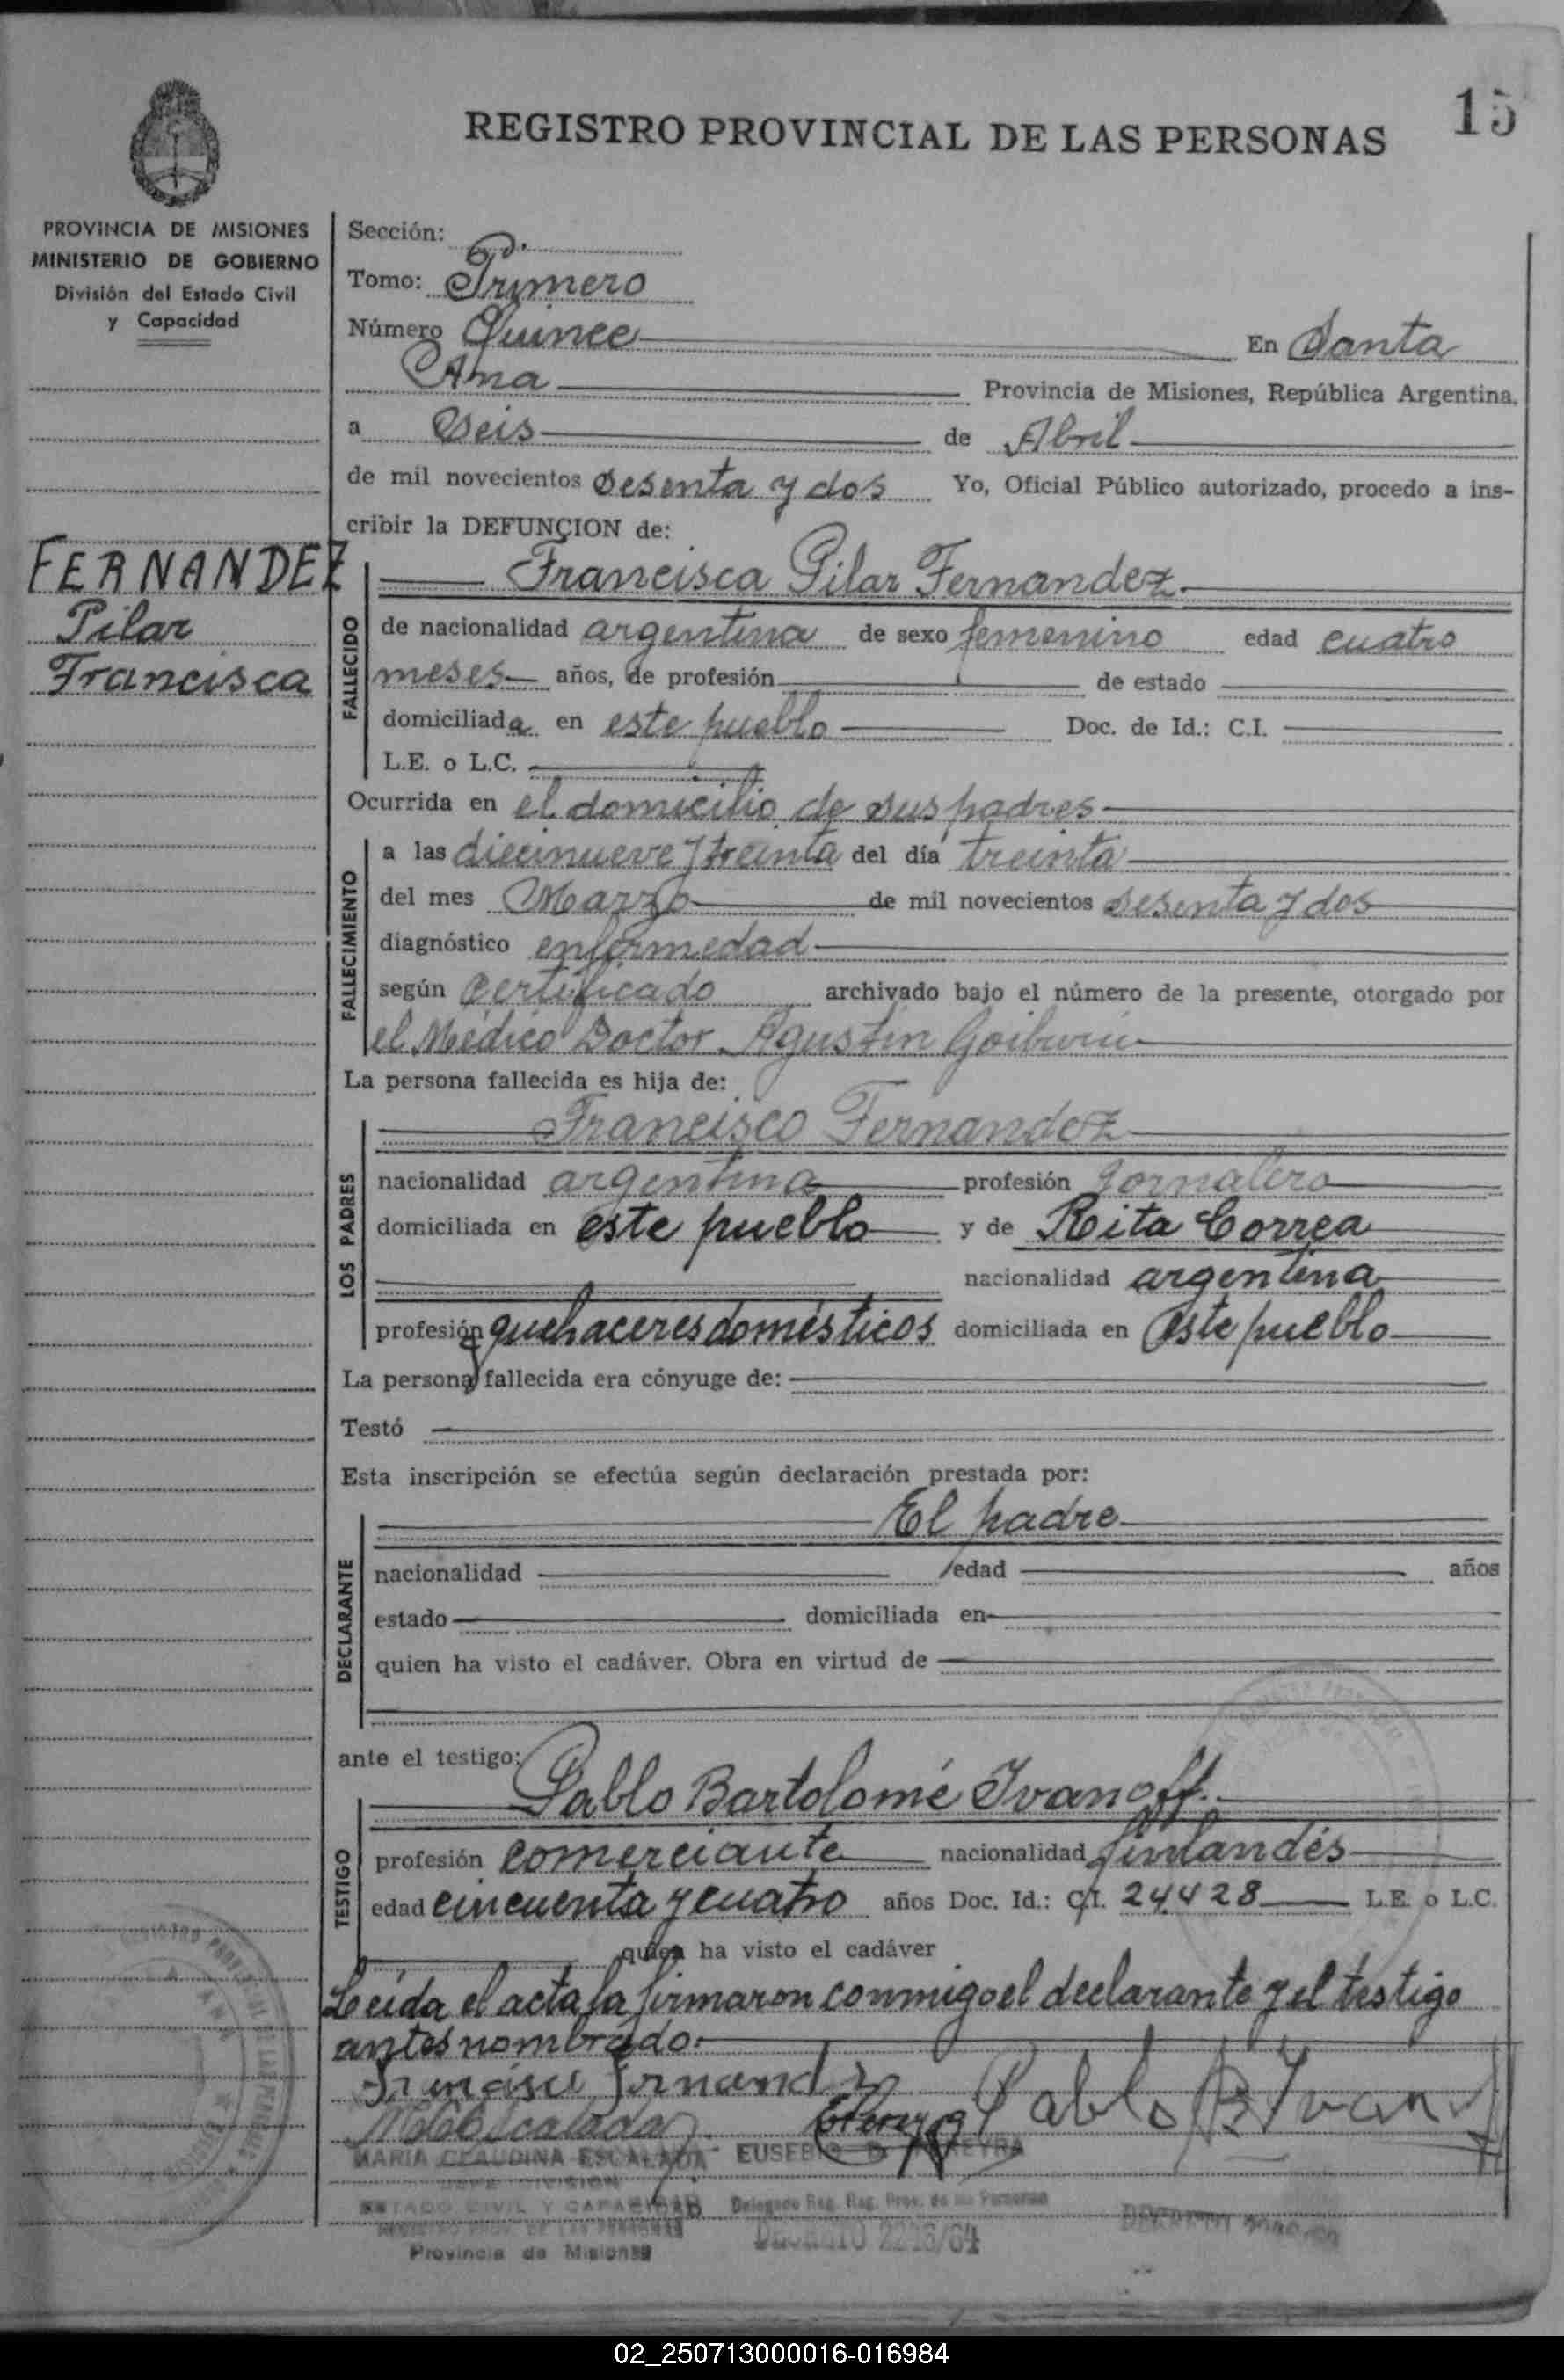 15
REGISTRO PROVINCIAL DE LAS PERSONAS
PROVINCIA DE MISIONES
MINISTERIO DE GOBIERNO
División del Estado Civil
y Capacidad
FERNANDEZ
Pilar
Francisca
Sección:
Tomo: Primero
Número Quince En Santa
Ana Provincia de Misiones, República Argentina,
a Seis de Abril
de mil novecientos sesenta y dos Yo, Oficial Público autorizado, procedo a ins-
cribir la DEFUNCION de:
FALLECIDO
Francisca Pilar Fernandez
de nacionalidad argentina de sexo femenino edad cuatro
meses años, de profesión de estado
domiciliada en este pueblo Doc. de Id.: C.I.
L.E. o L.C.
Ocurrida en el domicilio de sus padres
FALLECIMIENTO
a las diecinueve y treinta del día treinta
del mes Marzo de mil novecientos sesenta y dos
diagnóstico enfermedad
según certificado archivado bajo el número de la presente, otorgado por
el Médico Doctor Agustin Goiburú
La persona fallecida es hija de:
LOS PADRES
Francisco Fernandez
nacionalidad argentina profesión jornalero
domiciliada en este pueblo y de Rita Correa
nacionalidad argentina
profesión quehaceres domésticos domiciliada en este pueblo
La persona fallecida era cónyuge de:
Testó
Esta inscripción se efectúa según declaración prestada por:
DECLARANTE
El padre
nacionalidad edad años
estado domiciliada en
quien ha visto el cadáver. Obra en virtud de
ante el testigo:
TESTIGO
Pablo Bartolomé Ivanoff.
profesión comerciante nacionalidad finlandés
edad cincuenta y cuatro años Doc. Id.: C.I. 24428 L.E. o L.C.
quien ha visto el cadáver
Leída el acta la firmaron conmigo el declarante y el testigo
antes nombrado.
Francisco Fernandez Pablo B Ivanoff
MARIA CLAUDINA ESCALADA EUSEBIO
JEFE DIVISION
ESTADO CIVIL Y CAPACIDAD Delegado Reg. Prov. de las Personas
REGISTRO PROV. DE LAS PERSONAS DECRETO 2226/64
Provincia de Misiones
DECRETO
02_250713000016-016984